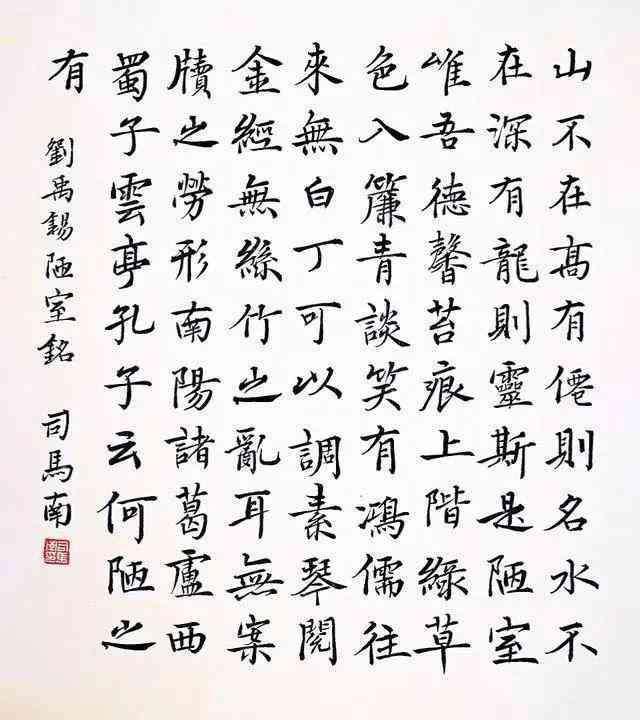 山不在高有僊則名水不
在深有龍則靈斯是陋室
唯吾德馨苔痕上階綠草
色入簾青談笑有鴻儒往
來無白丁可以調素琴閱
金經無絲竹之亂耳無案
牘之勞形南陽諸葛廬西
蜀子雲亭孔子云何陋之
有
劉禹錫陋室銘 司馬南